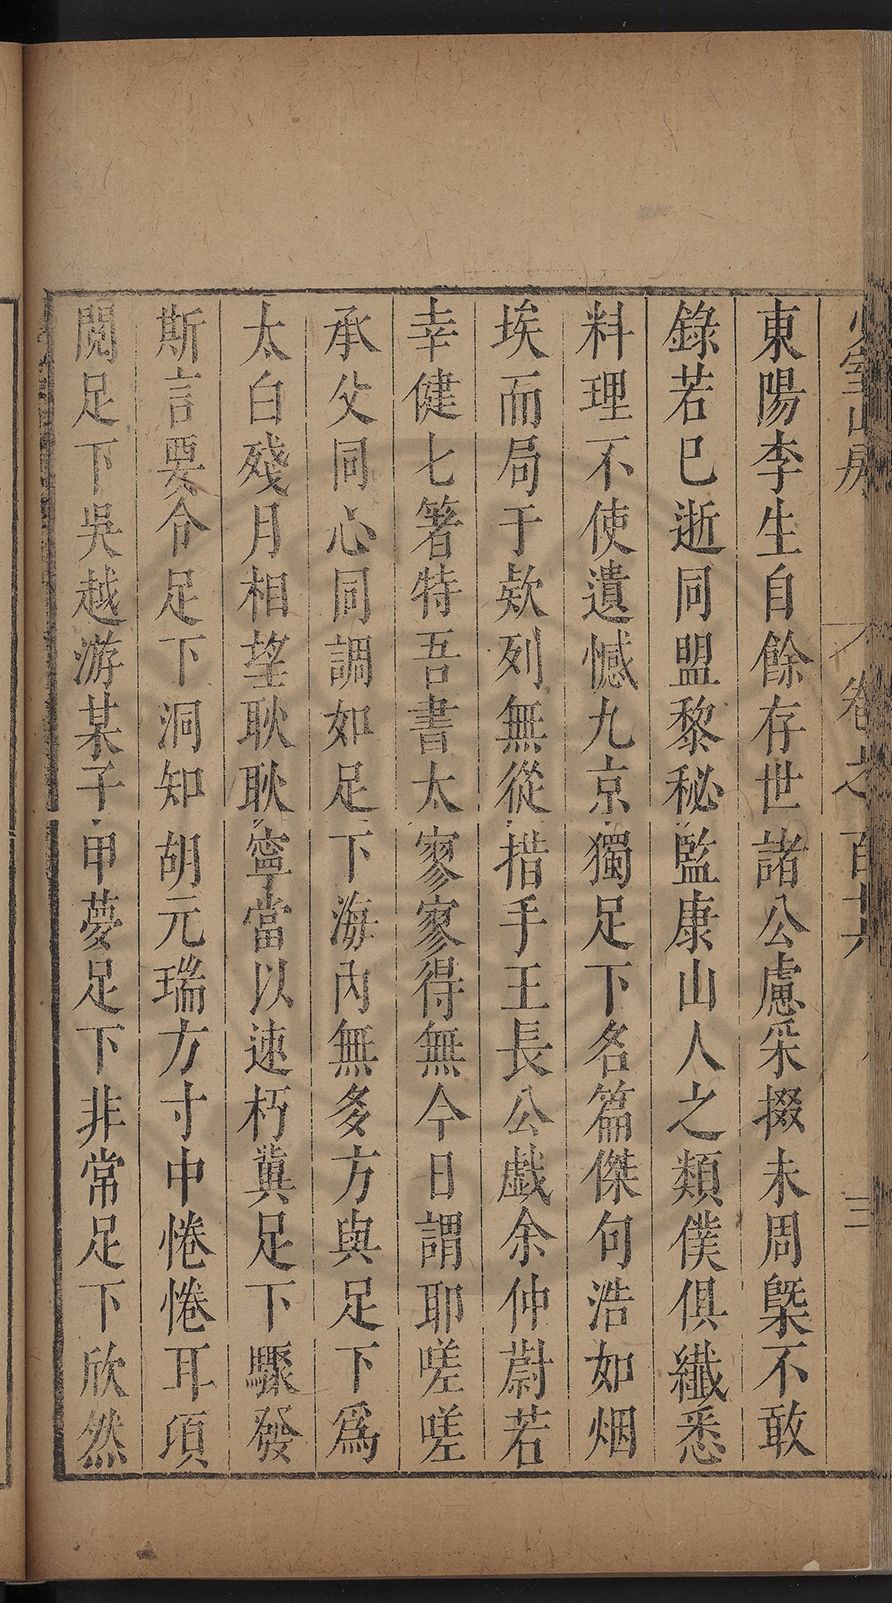 少室山房 卷之百十六 三
東陽李生自餘存世諸公慮采掇未周槩不敢
錄若已逝同盟黎秘監康山人之類僕俱纖悉
料理不使遺憾九京獨足下名篇傑句浩如烟
埃而局于欵列無從措手王長公戱余仲蔚若
幸健七箸特吾書太寥寥得無今日謂耶嗟嗟
承父同心同調如足下海內無多方與足下爲
太白殘月相望耿耿寧當以速朽冀足下驟發
斯言要令足下洞知胡元瑞方寸中惓惓耳項
閱足下吳越游某子甲夢足下非常足下欣然